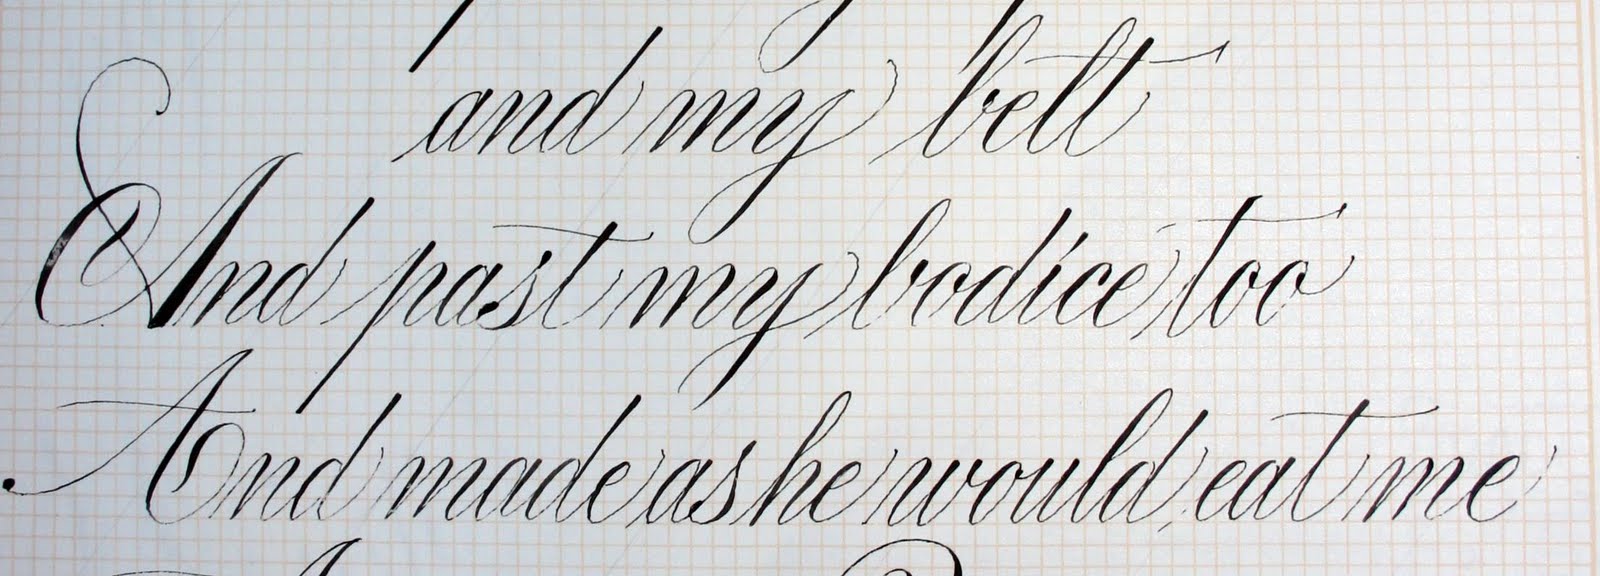 and my belt
And past my bodice too
And made as he would eat me